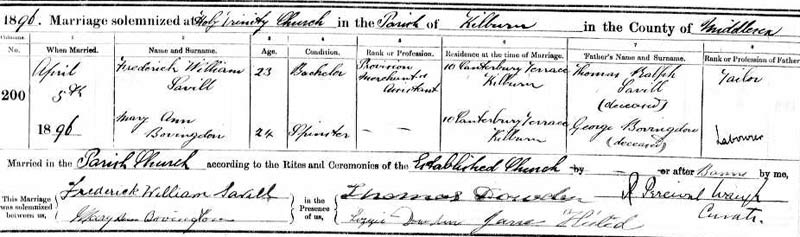 1896. Marriage solemnized at Holy Trinity Church in the Parish of Kilburn in the County of Middlesex
Columns 1 2 3 4 5 6 7 8
No. When Married. Name and Surname. Age. Condition. Rank or Profession. Residence at the time of Marriage. Father's Name and Surname. Rank or Profession of Father
200 April 5th 1896 Frederick William Savill 23 Bachelor Provision Merchant's Assistant 10 Canterbury Terrace Kilburn Thomas Ralph Savill (deceased) Tailor
Mary Ann Bovingdon 24 Spinster — — 10 Canterbury Terrace Kilburn George Bovingdon (deceased) Labourer
Married in the Parish Church according to the Rites and Ceremonies of the Established Church by — or after Banns by me,
This Marriage was solemnized between us, Frederick William Savill in the Presence of us, Thomas Dowden R Percival
Mary Ann Bovingdon Lizzie Dowden Jane Curate.